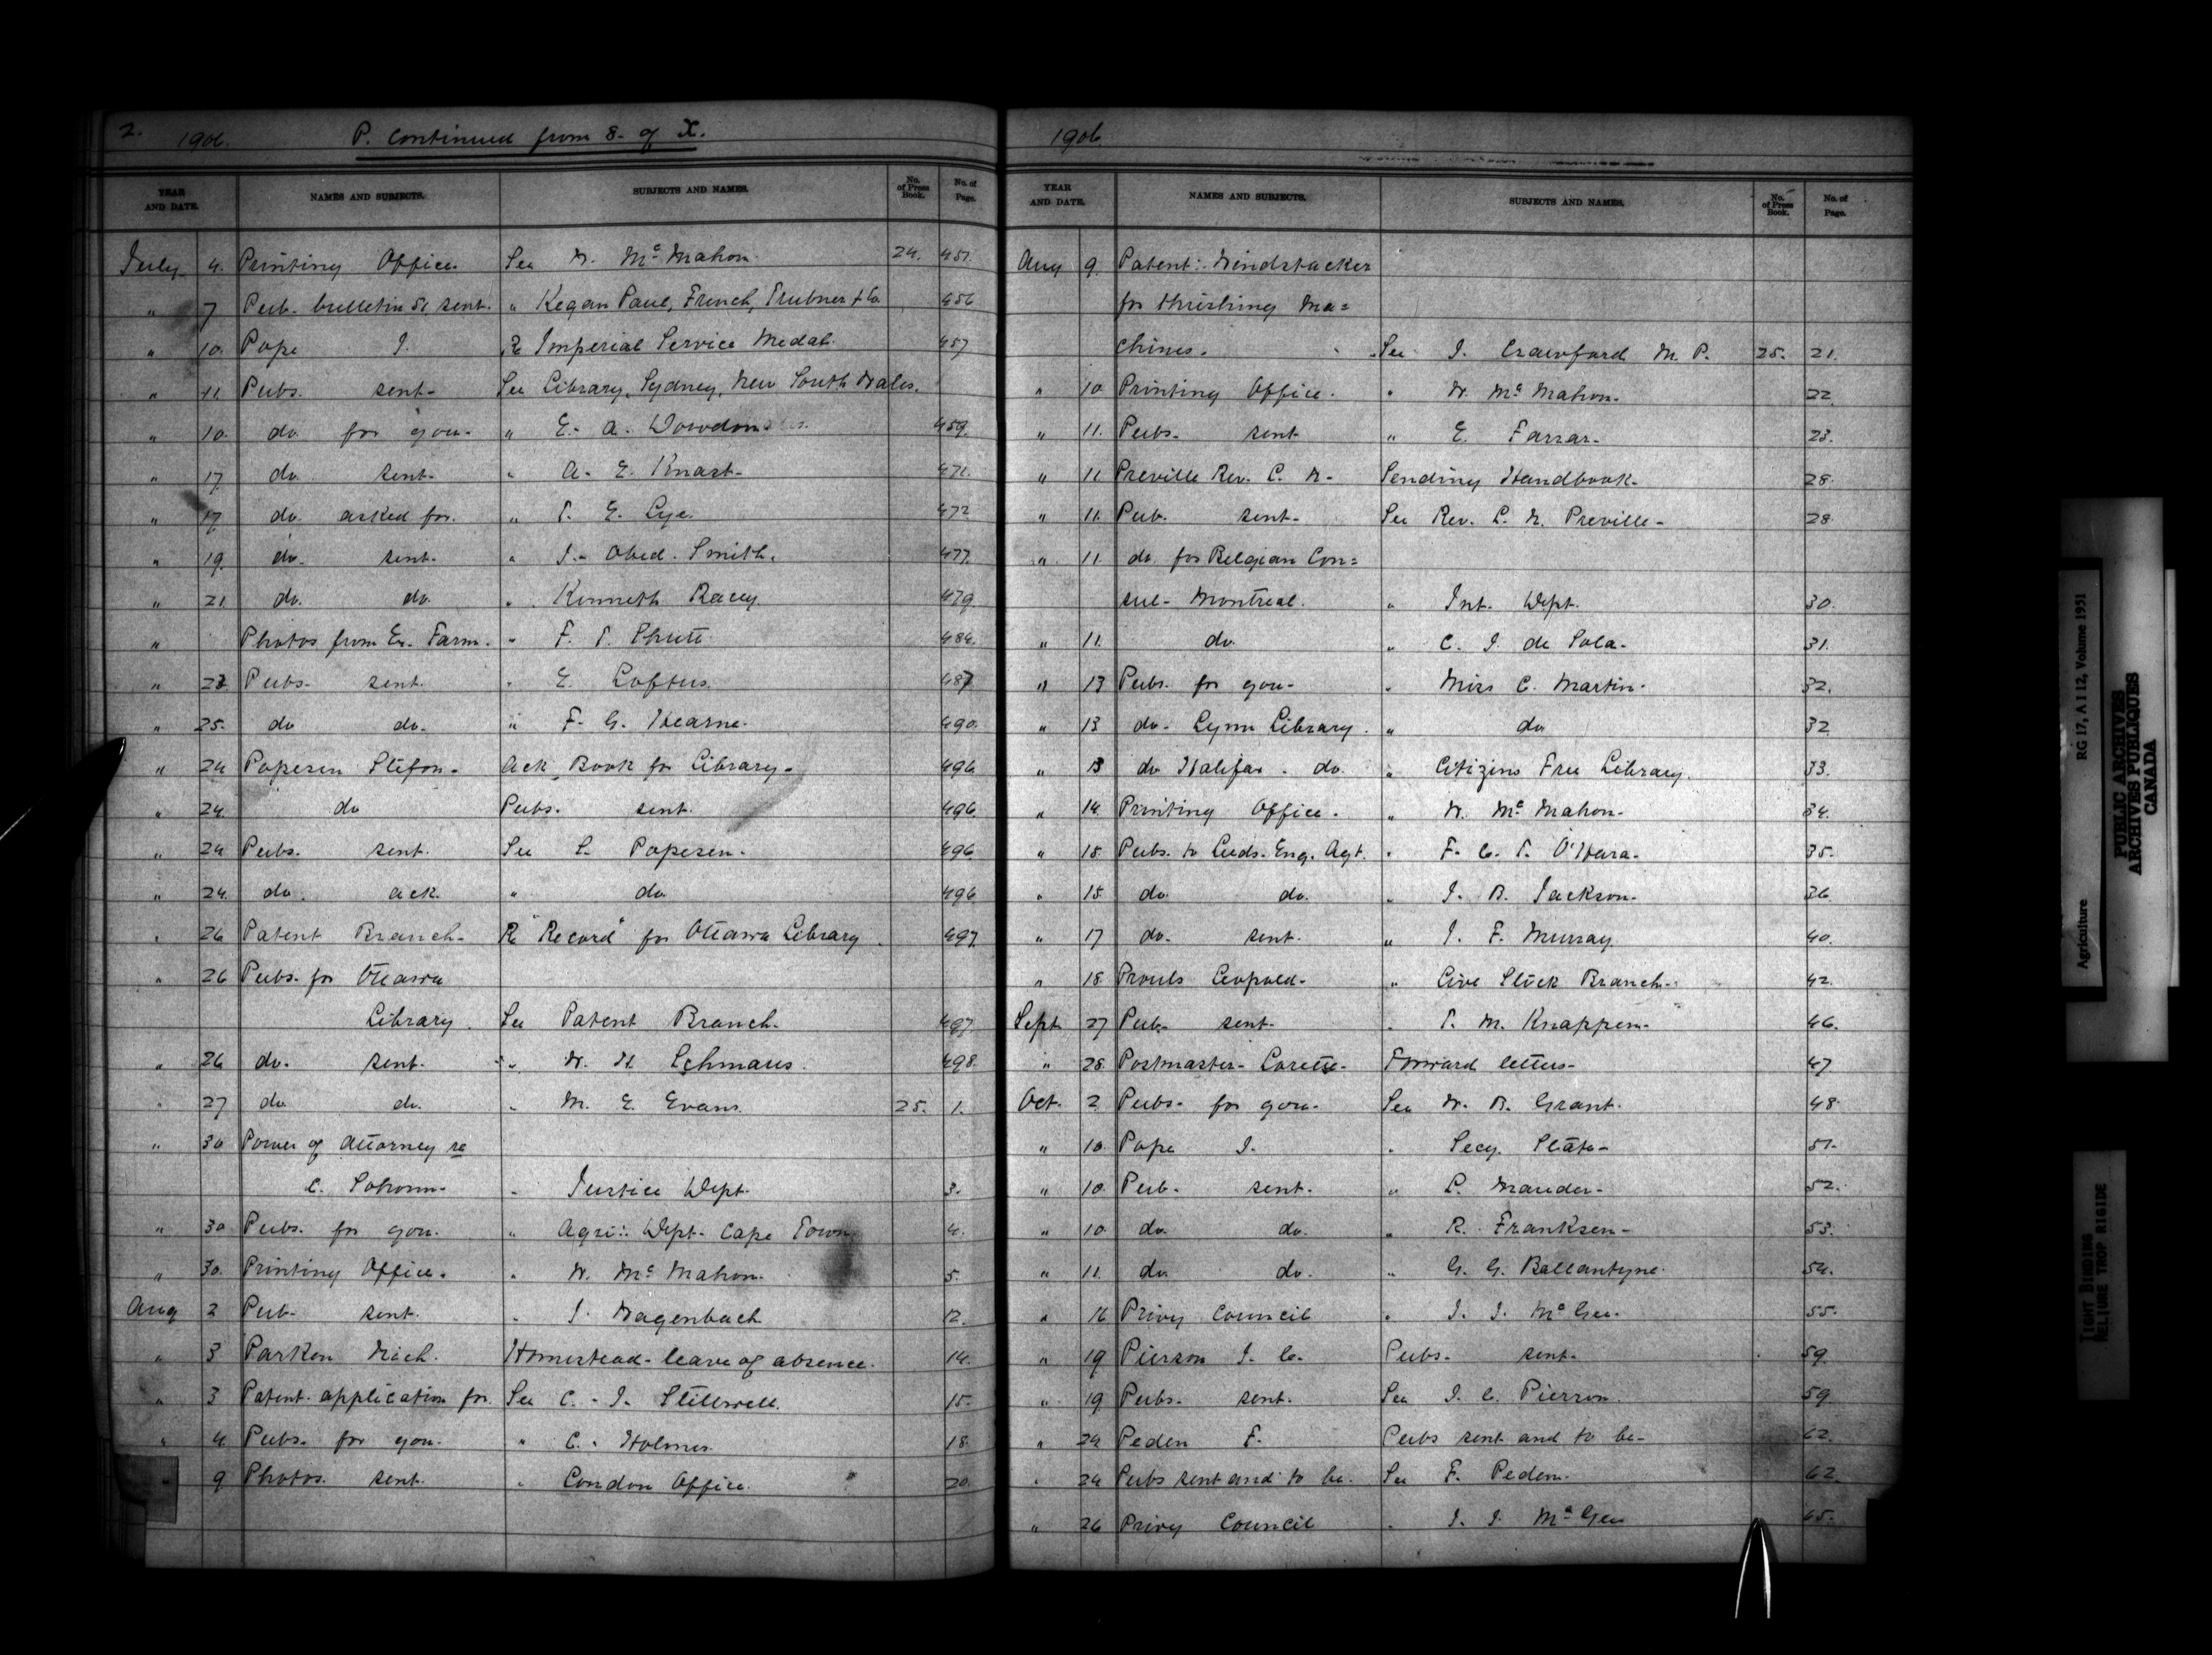 2. 1906. P. Continued from 8- of X.
YEAR AND DATE. NAMES AND SUBJECTS. SUBJECTS AND NAMES. No. of Press Book. No. of Page.
July 4. Printing Office. See W. McMahon. 24. 451.
" 7 Pub. bulletin 51, sent. " Kegan Paul, French, Trubner & Co. 456
" 10. Pope J. Re Imperial Service Medal. 457
" 11. Pubs. sent- See Library, Sydney, New South Wales.
" 10. do for you- " E. A. 459.
" 17. do sent- " A. E. Knast- 471.
" 17 do. asked for. " T. E. Lye. 472
" 19. do. sent. " J. Obed. Smith. 477.
" 21. do. do. " Kenneth Racey. 479.
" Photos from Ex. Farm. " F. T. Shutt 484.
" 23 Pubs. sent. " E. Loftus. 487
" 25. do do. " F. G. Hearne. 490.
" 24 Popesen Stefon- Ack. Book for Library- 496
" 24. do Pubs. sent. 496
" 24 Pubs. sent. See S. Popesen. 496
" 24. do. ack. " do. 496
" 26 Patent Branch- Re "Record" for Ottawa Library. 497.
" 26 Pubs. for Ottawa
Library. See Patent Branch. 497
" 26 do. sent. " W. H. Lehmaus. 498.
" 27 do. do. " M. E. Evans. 25. 1.
" 30 Power of Attorney re
C. - " Justice Dept. 3.
" 30 Pubs. for you. " Agri: Dept. Cape Town. 4.
" 30. Printing Office. " W. McMahon. 5.
Aug 2 Pub. sent. " J. Wagenbach 12.
" 3 Parken Nich. Homestead- leave of absence. 14.
" 3 Patent- application for. See C. J. Stillwell. 15.
" 4 Pubs. for you. " C. Holmes. 18.
" 9 Photos. sent. " London Office. 20.
1906
YEAR AND DATE. NAMES AND SUBJECTS. SUBJECTS AND NAMES. No. of Press Book. No. of Page.
Aug 9. Patent: Windstacker
for thrishing Ma=
chines. See J. Crawford M. P. 25. 21.
" 10 Printing Office. " W. McMahon. 22.
" 11. Pubs- sent " E. Farrar- 23.
" 11 Preville Rev. C. W- Sending Handbook. 28.
" 11. Pub. sent- See Rev. C. W. Preville- 28.
" 11. do. for Belgian Con=
sul- Montreal. " Int. Dept. 30.
" 11. do. " C. I. de Sola- 31.
" 13 Pubs. for you- " Miss C. Martin- 32.
" 13 do- Lynn Library. " do 32.
" 13 do Halifax. do. " Citizins Free Library. 33.
" 14 Printing Office. " W. McMahon- 34.
" 15 Pubs. to Leeds. Eng. Agt. " F. C. T. O'Hara- 35.
" 15 do. do. " J. B. Jackson- 36.
" 17 do- sent. " J. F. Murray 40.
" 18 Prouls Leopold- " Live Stock Branch- 42.
Sept 27 Pub- sent- " T. M. Knappen- 46.
" 28. Postmaster- Lorette- Forward letters- 47
Oct. 2 Pubs- for you- See W. B. Grant. 48.
" 10. Pope J. " Secy. State- 51.
" 10. Pub- sent. " L. Mauder- 52.
" 10. do. do. " R. Franksen- 53.
" 11. do. do. " G. G. Ballantyne. 54.
" 16 Privy Council " J. J. McGee. 55.
" 19 Pierson J. C. Pubs- sent- 59.
" 19 Pubs- sent. See J. C. Pierson. 59
" 24 Peden F. Pubs sent and to be- 62.
" 24 Pubs sent and to be. See F. Peden. 62.
" 26 Privy Council " J. J. McGee 65.
Agriculture RG 17, A I 12, Volume 1951
PUBLIC ARCHIVES
ARCHIVES PUBLIQUES
CANADA
TIGHT BINDING
RELIURE TROP RIGIDE